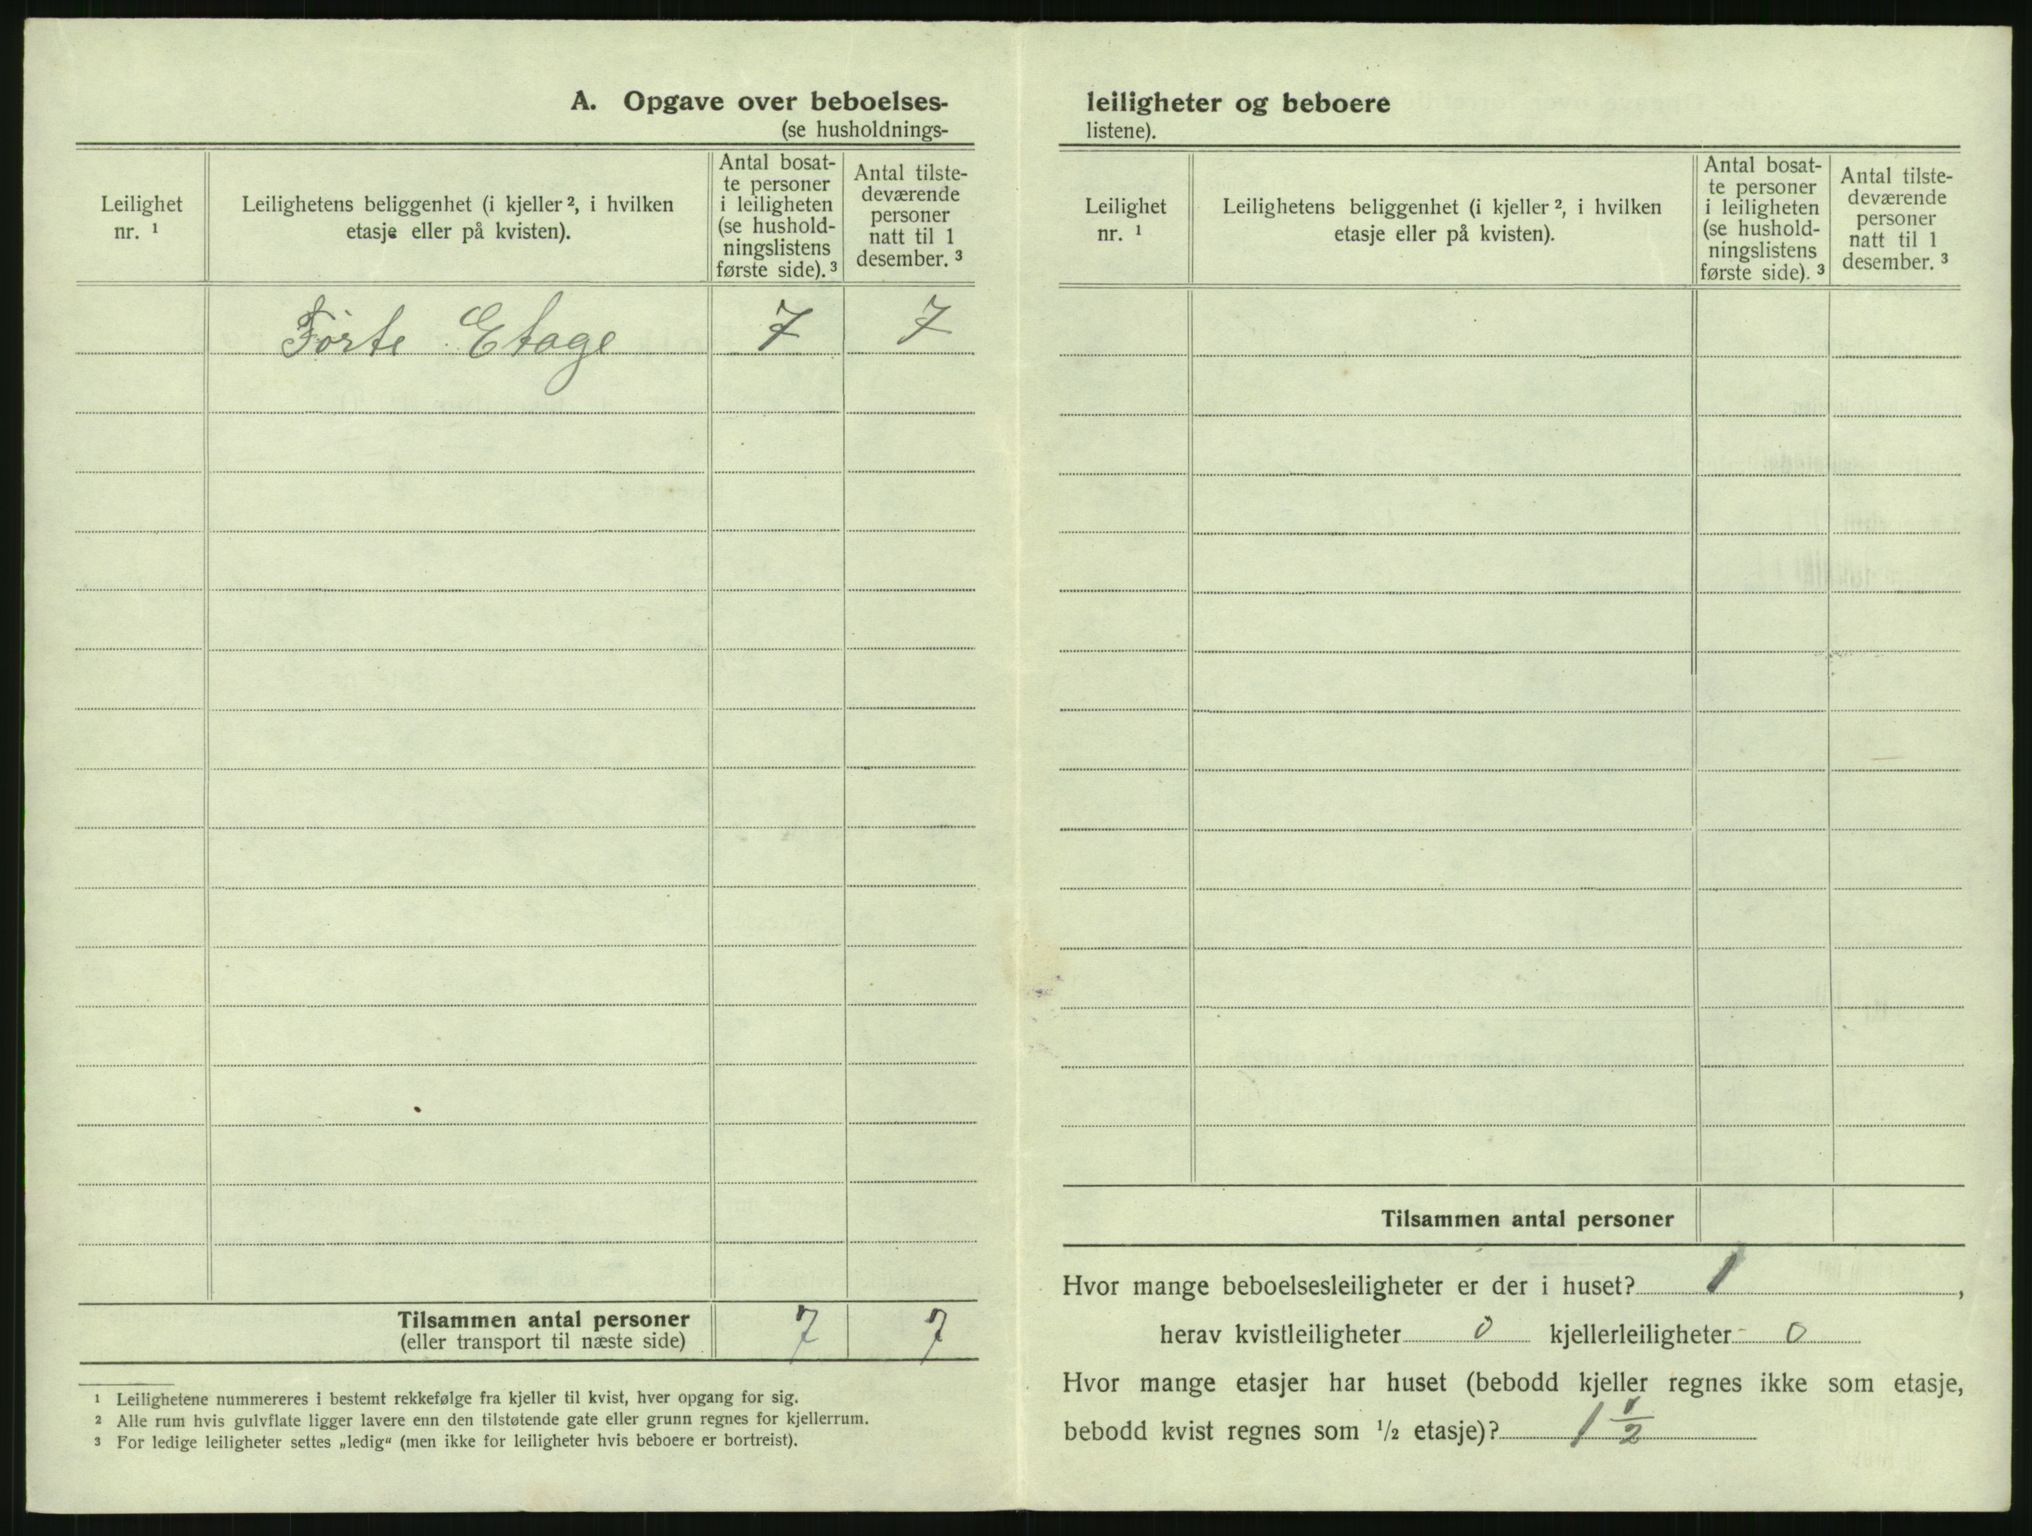 A. Opgave over beboelses-
(se husholdnings-
Leilighet
nr. ¹
Leilighetens beliggenhet (i kjeller ², i hvilken
etasje eller på kvisten).
Antal bosat-
te personer
i leiligheten
(se hushold-
ningslistens
første side). ³
Antal tilste-
deværende
personer
natt til 1
desember. ³
Førte Etage 7 7
Tilsammen antal personer 7 7
(eller transport til næste side)
¹ Leilighetene nummereres i bestemt rekkefølge fra kjeller til kvist, hver opgang for sig.
² Alle rum hvis gulvflate ligger lavere enn den tilstøtende gate eller grunn regnes for kjellerrum.
³ For ledige leiligheter settes „ledig“ (men ikke for leiligheter hvis beboere er bortreist).
leiligheter og beboere
listene).
Leilighet
nr. ¹
Leilighetens beliggenhet (i kjeller ², i hvilken
etasje eller på kvisten).
Antal bosat-
te personer
i leiligheten
(se hushold-
ningslistens
første side). ³
Antal tilste-
deværende
personer
natt til 1
desember. ³
Tilsammen antal personer
Hvor mange beboelsesleiligheter er der i huset? 1 ,
herav kvistleiligheter 0 kjellerleiligheter 0
Hvor mange etasjer har huset (bebodd kjeller regnes ikke som etasje,
bebodd kvist regnes som ½ etasje)? 1 ½